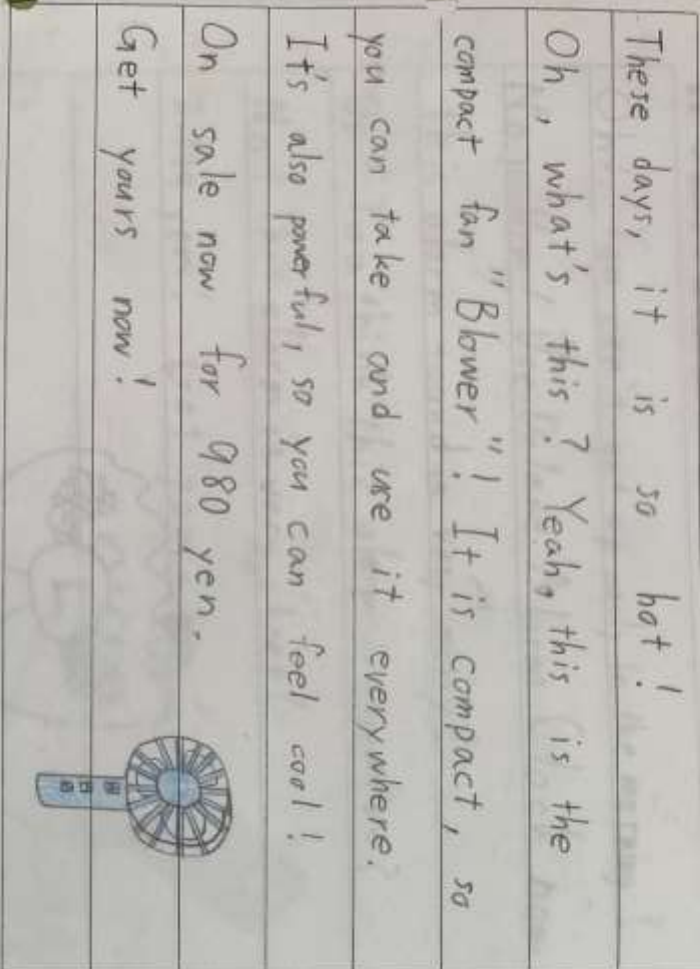 These days, it is so hot!
Oh, what's this? Yeah, this is the
compact fan "Blower"! It is compact, so
you can take and use it everywhere.
It's also powerful, so you can feel cool!
On sale now for 980 yen.
Get yours now!